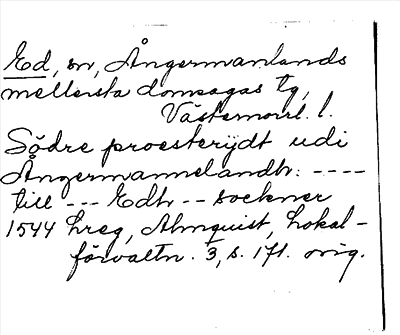 Ed, sn, Ångermanlands
mellersta domsagas tg,
Västernorrl. l.
Södre proesterijdt udi
Ångermannelandh: ----
till --- Edh -- sockner
1544 hreg, Almquist, Lokal-
förvaltn. 3, s. 171. orig.